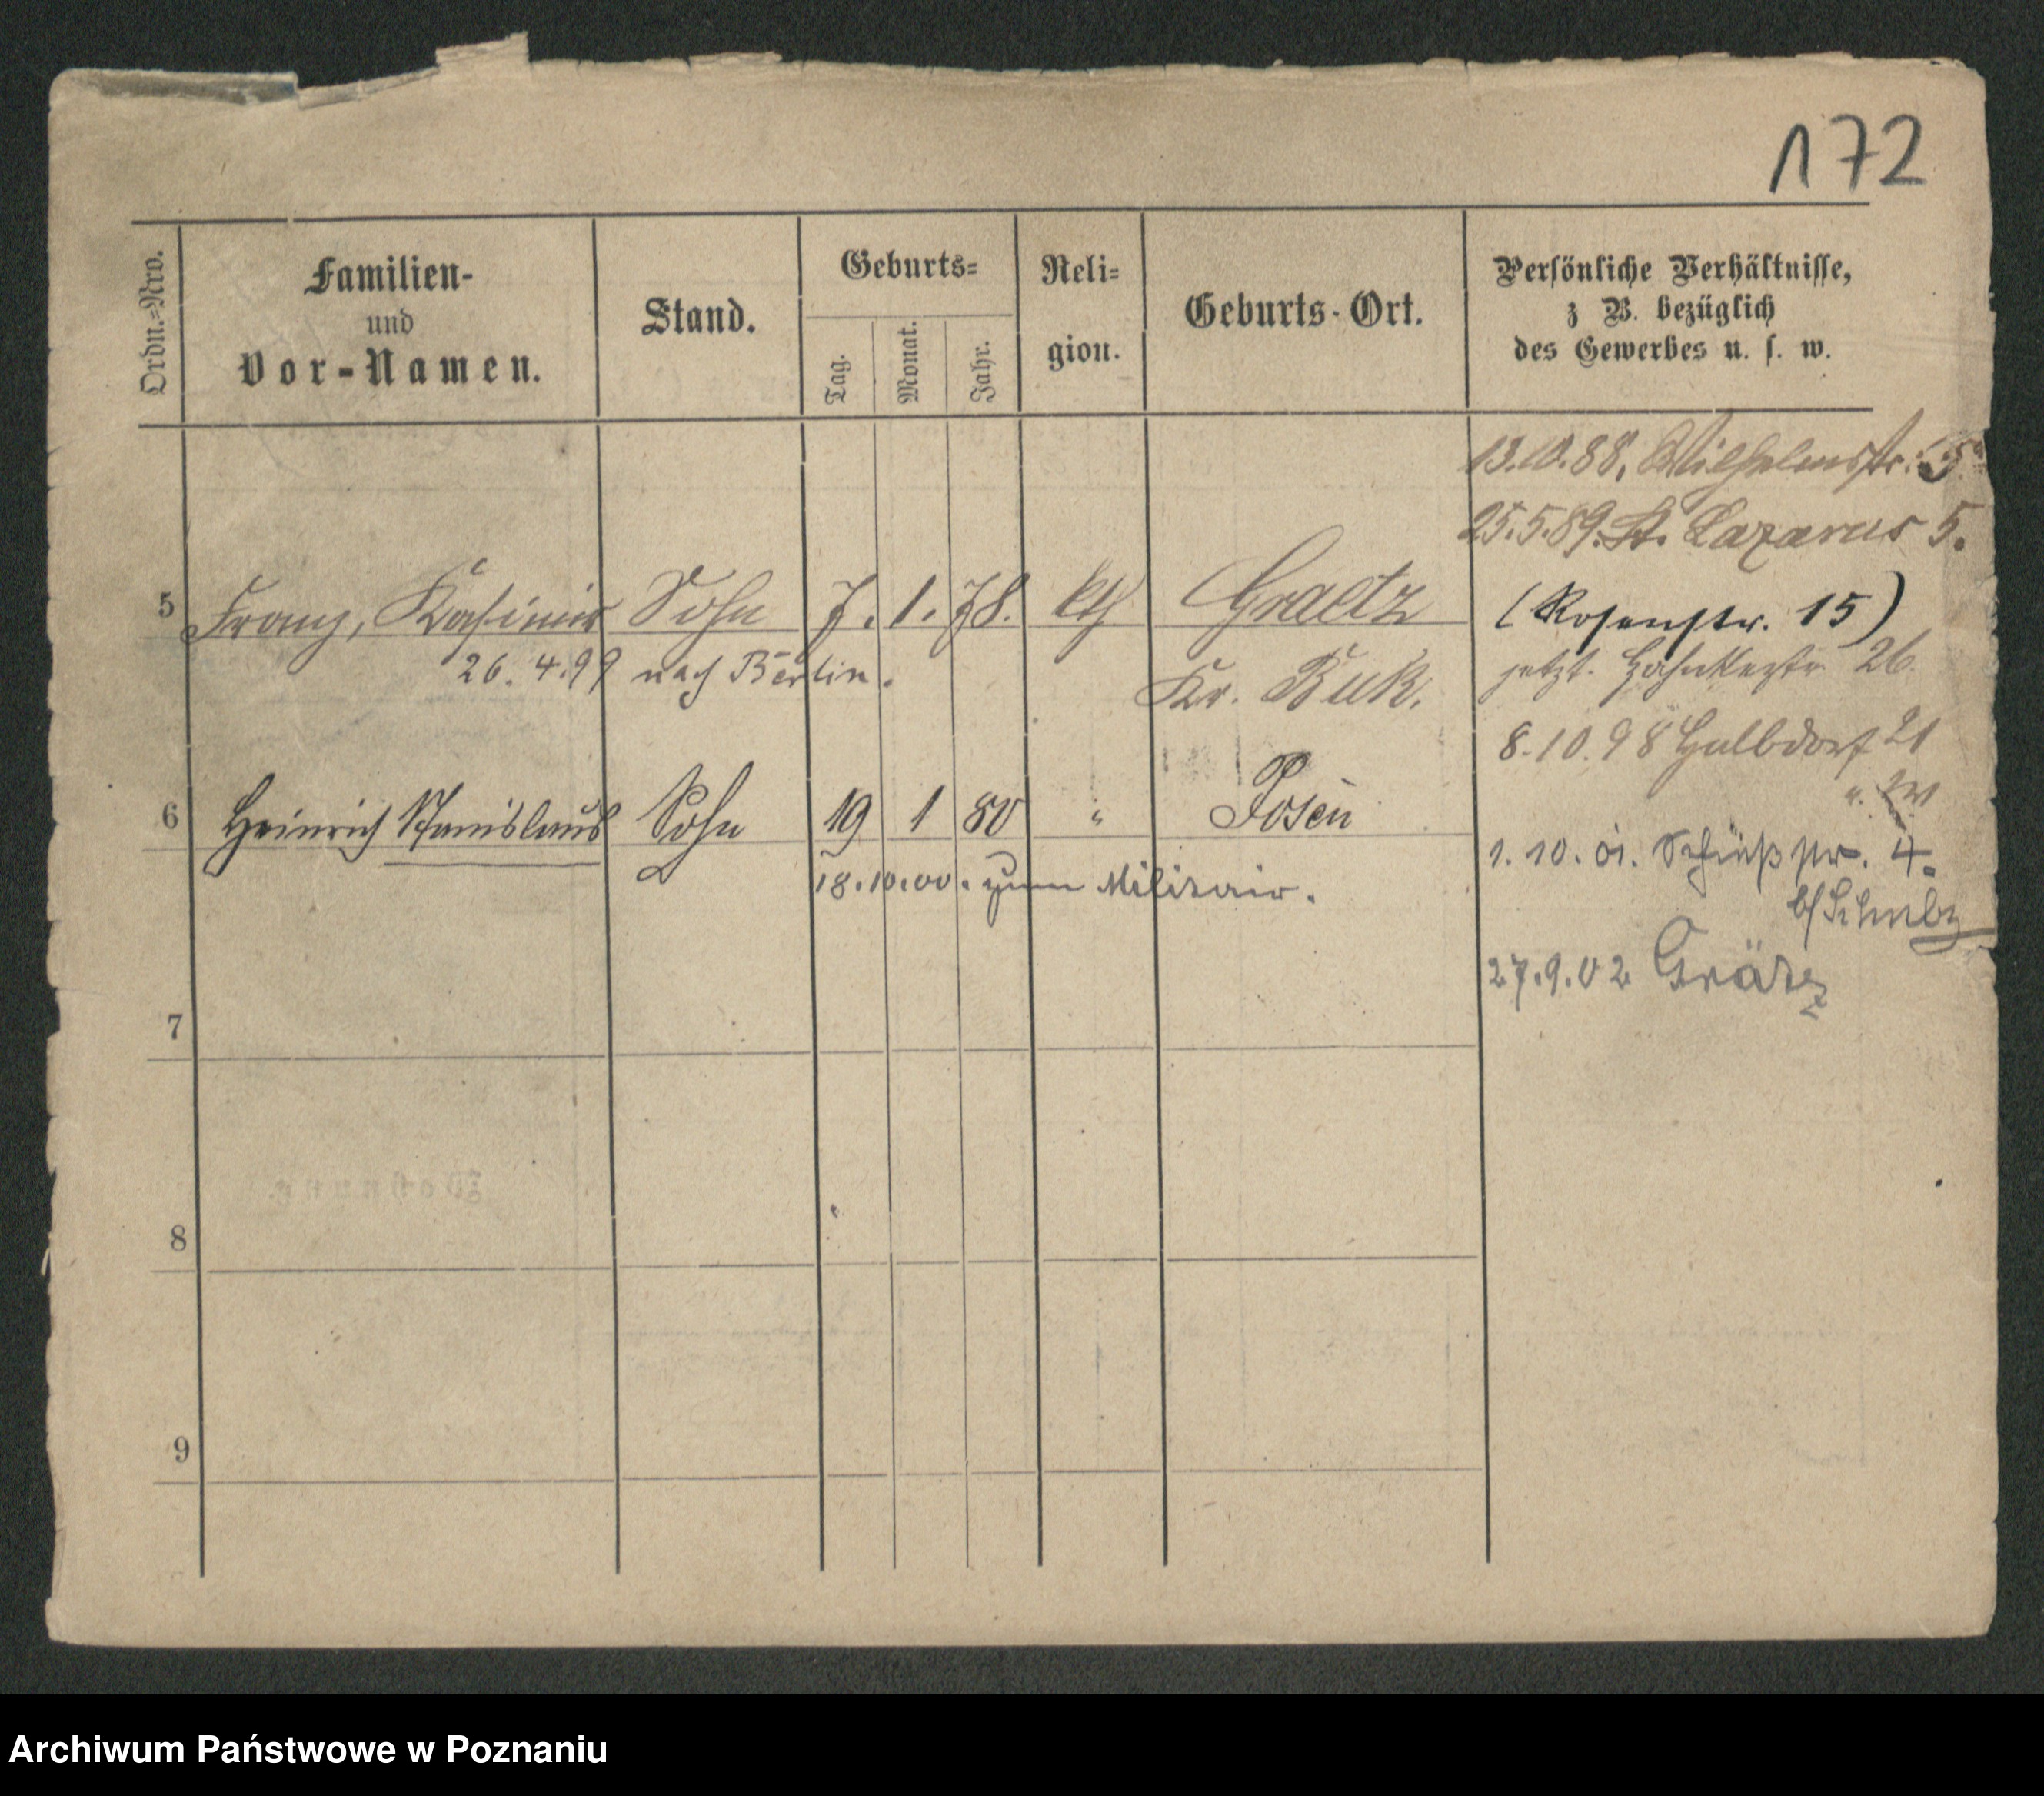 172
Ordn.=Nro.
Familien-
und
Vor-Namen.
Stand.
Geburts=
Tag.
Monat.
Jahr.
Reli=
gion.
Geburts-Ort.
Persönliche Verhältnisse,
z B. bezüglich
des Gewerbes u. s. w.
13.10.88, Wilhelmstr. 5
25.5.89. St. Lazarus 5.
5 Franz, Kasimir Sohn 7. 1. 78. kth Graetz
Kr. Buk.
26. 4. 99 nach Berlin.
(Rosenstr. 15)
jetzt. 26
8.10.98 Halbdorf 21
6 Heinrich Stanislaus Sohn 19 1 80 " Posen
18.10.00. zum Militair.
1. 10. 01. Schießstr. 4.
27.9.02 Grätz
7
8
9
Archiwum Państwowe w Poznaniu